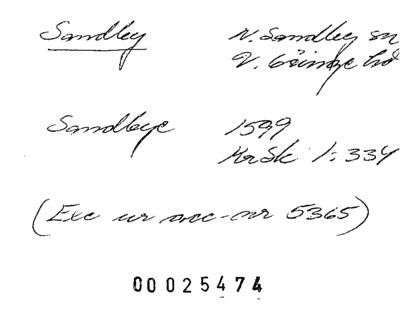 Sandley N. Sandley sn
V. Göinge hd
Sandbye 1599
KrSk 1:334
(Exc ur acc-nr 5365)
00025474